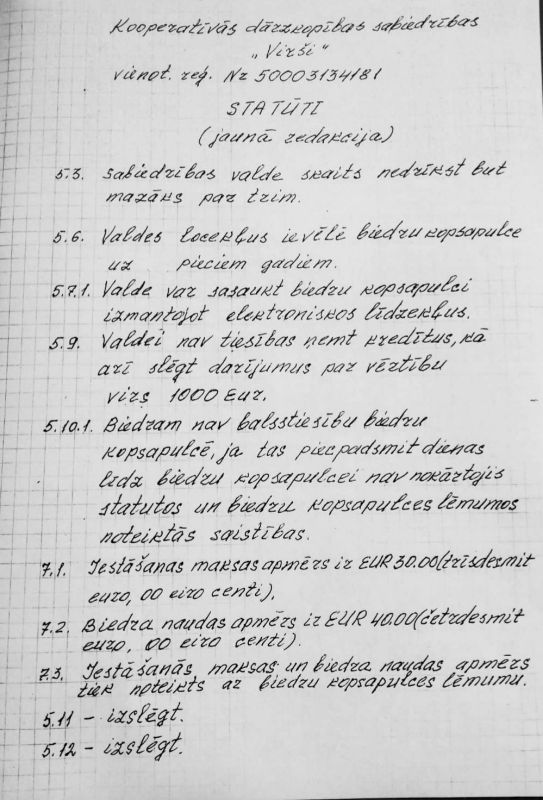 Kooperatīvās dārzkopības sabiedrības
„Virši“
vienot. reģ. Nr 50003134181
STATŪTI
(jaunā redakcija)
5.3. Sabiedrības valde skaits nedrīkst but
mazāks par trim.
5.6. Valdes locekļus ievēlē biedru kopsapulce
uz pieciem gadiem.
5.7.1. Valde var sasaukt biedru kopsapulci
izmantojot elektroniskos līdzekļus.
5.9. Valdei nav tiesības ņemt kredītus, kā
arī slēgt darījumus par vērtību
virs 1000 Eur.
5.10.1. Biedram nav balsstiesību biedru
kopsapulcē, ja tas piecpadsmit dienas
līdz biedru kopsapulcei nav nokārtojis
statutos un biedru kopsapulces lēmumos
noteiktās saistības.
7.1. Iestāšanas maksas apmērs ir EUR 30.00 (trīsdesmit
euro, 00 eiro centi).
7.2. Biedra naudas apmērs ir EUR 40.00 (četrdesmit
euro, 00 eiro centi).
7.3. Iestāšanās maksas un biedra naudas apmērs
tiek noteikts ar biedru kopsapulces lēmumu.
5.11 – izslēgt.
5.12 – izslēgt.